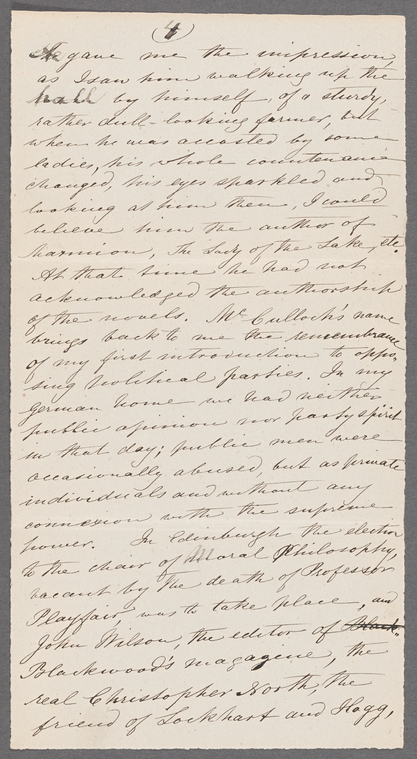 (4)
He gave me the impression,
as I saw him walking up the
hall by himself, of a sturdy,
rather dull-looking farmer, but
when he was accosted by some
ladies, his whole countenance
changed, his eyes sparkled and
looking at him then, I could
believe him the author of
Marmion, The Lady of the Lake, etc.
At that time he had not
acknowledged the authorship
of the novels. Mc Culloch's name
brings back to me the remembrance
of my first introduction to oppo-
sing political parties. In my
German home we had neither
public opinion nor party spirit
in that day; public men were
occasionally abused, but as private
individuals and without any
connexion with the supreme
power. In Edinburgh the election
to the chair of Moral Philosophy,
vacant by the death of Professor
Playfair, was to take place, and
John Wilson, the editor of Black-
Blackwood's magazine, the
real Christopher North, the
friend of Lockhart and Hogg,